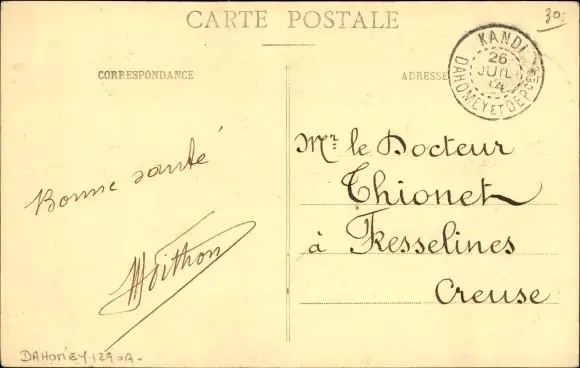 CARTE POSTALE
30
CORRESPONDANCE
ADRESSE
KANDI
26
JUIL
14
DAHOMEY ET DEPCES
Bonne santé
Mr le Docteur
Thionet
à Fresselines
Creuse
DAHOMEY.129